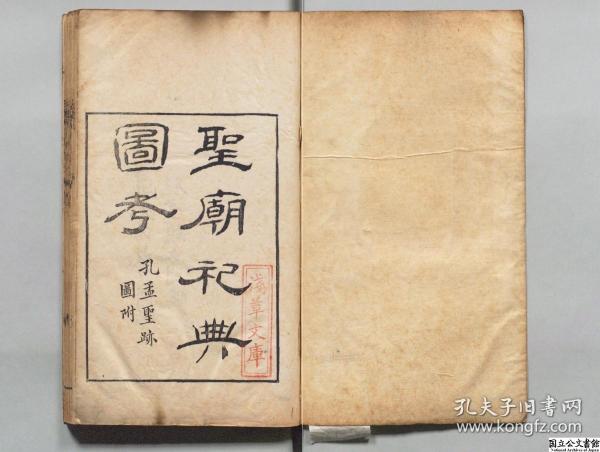 聖廟祀典
圖考
孔孟聖跡
圖附
淺草文庫
孔夫子旧书网
www.kongfz.com
国立公文書館
National Archives of Japan